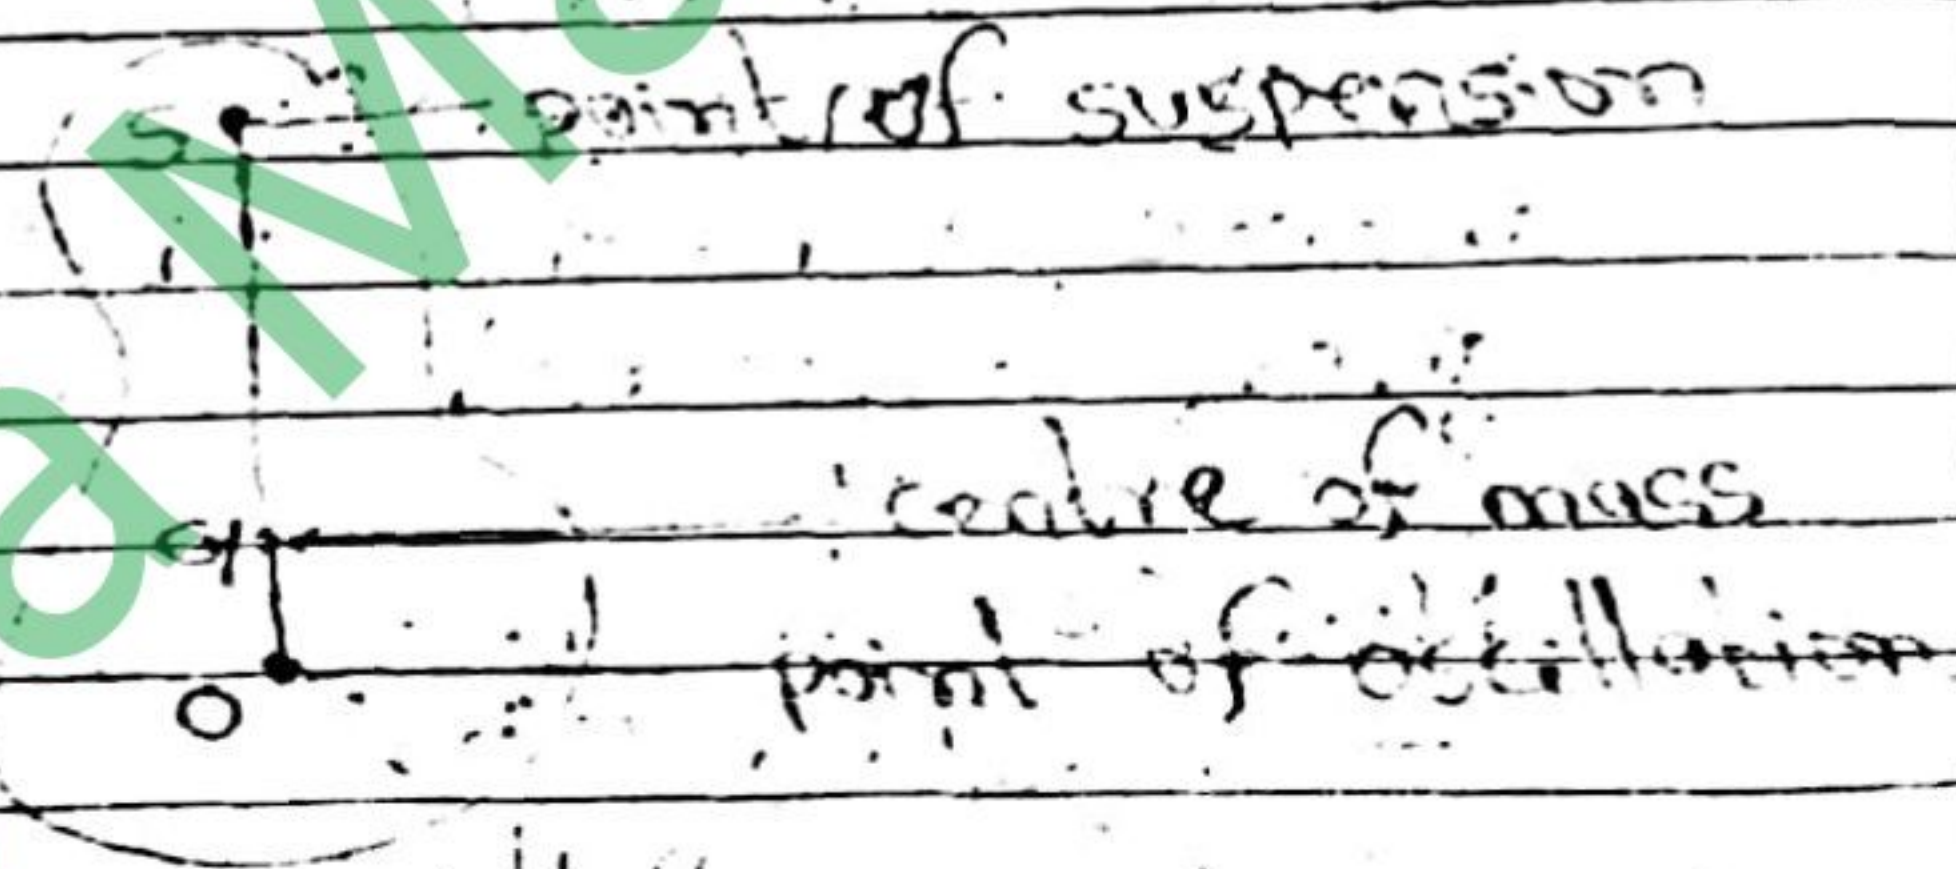 S point of suspension
G centre of mass
point of oscillation
O